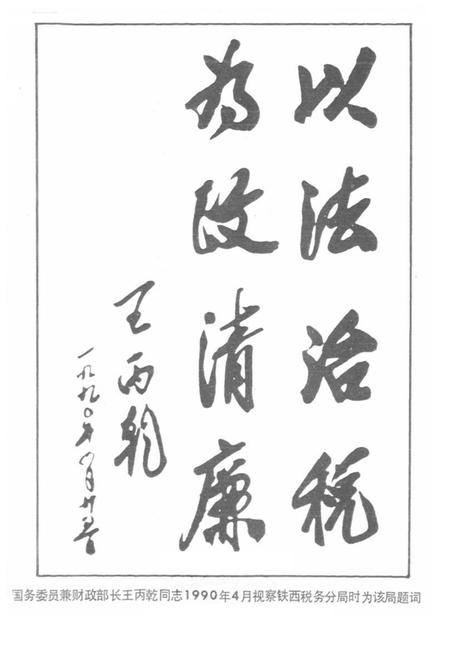 以法治税
为政清廉
王丙乾
一九九〇年四月廿五日
国务委员兼财政部长王丙乾同志1990年4月视察铁西税务分局时为该局题词